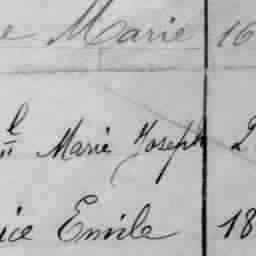 e Marie 16
l
" Marie Joseph 2
ice Emile 18